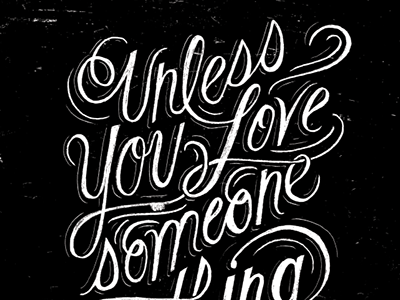 Unless
You Love
someone